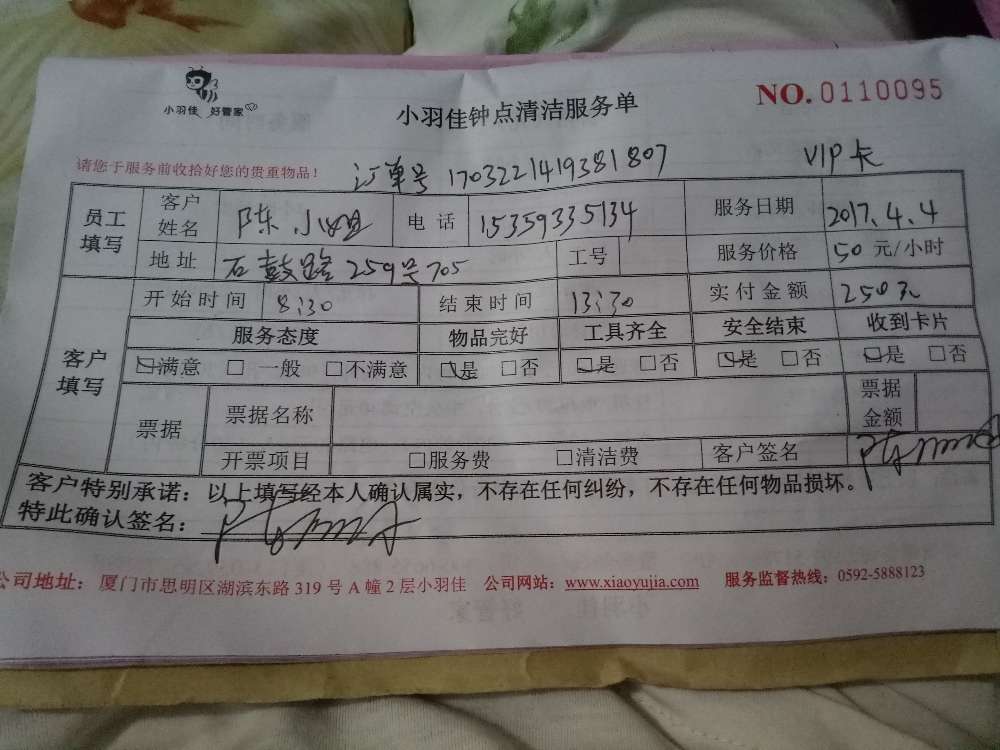 小羽佳 好管家
小羽佳钟点清洁服务单
NO. 0110095
请您于服务前收拾好您的贵重物品！ 订单号 1703221419381807 VIP卡
员工填写 客户姓名 陈小姐 电话 15359335134 服务日期 2017.4.4
地址 石鼓路259号705 工号 服务价格 50 元/小时
客户填写 开始时间 8:30 结束时间 13:30 实付金额 250元
服务态度 物品完好 工具齐全 安全结束 收到卡片
☑满意 □ 一般 □不满意 ☑是 □否 ☑是 □否 ☑是 □否 ☑是 □否
票据 票据名称 票据金额
开票项目 □服务费 □清洁费 客户签名
客户特别承诺：以上填写经本人确认属实，不存在任何纠纷，不存在任何物品损坏。
特此确认签名：
公司地址：厦门市思明区湖滨东路 319 号 A 幢 2 层小羽佳 公司网站：www.xiaoyujia.com 服务监督热线：0592-5888123